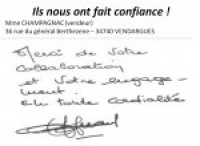 Ils nous ont fait confiance !
Mme CHAMPAGNAC (vendeur)
36 rue du général Berthezene – 34740 VENDARGUES
Merci de Votre
Collaboration
et Votre engage-
ment.
En toute cordialité